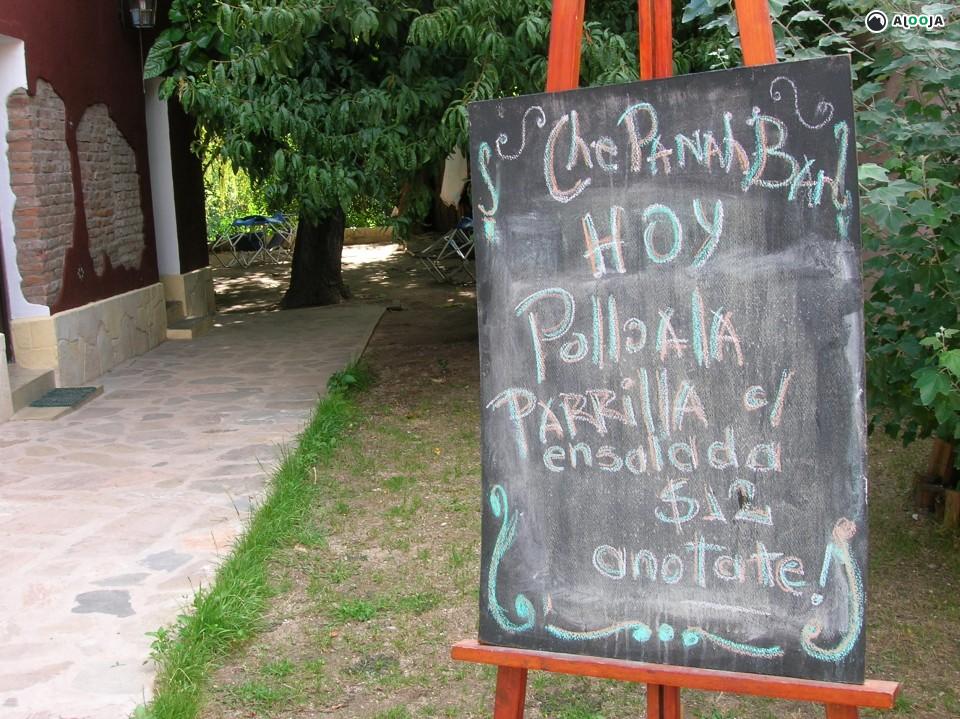 ALOOJA
Che PANAh BAR
HOY
Pollo A lA
PARRillA c/
ensalada
$12
anotate!